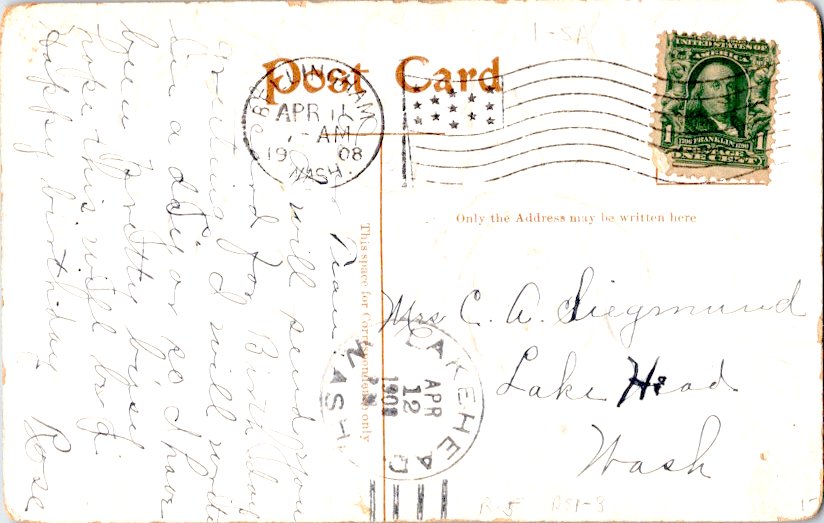 1-SA
Post Card
BELLINGHAM
APR 11
-AM
1908
WASH.
UNITED STATES OF
AMERICA
1 1
1706 FRANKLIN 1790
POSTAGE
ONE CENT
Only the Address may be written here
This space for Correspondence only
Mrs C. A. Siegmund
Lake Head
Wash
LAKEHEAD
APR
12
PM
1908
WASH
Dear
I will send you
card for Birth day
greetings I will write
in a day or so I have
been pretty busy
hope this will bring
happy birthday
Rose
R-5 DS1-8